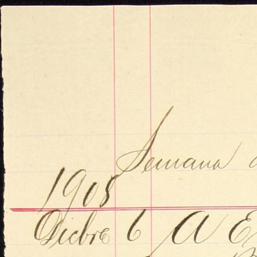 Semana
1905
Dicbre 6 A E